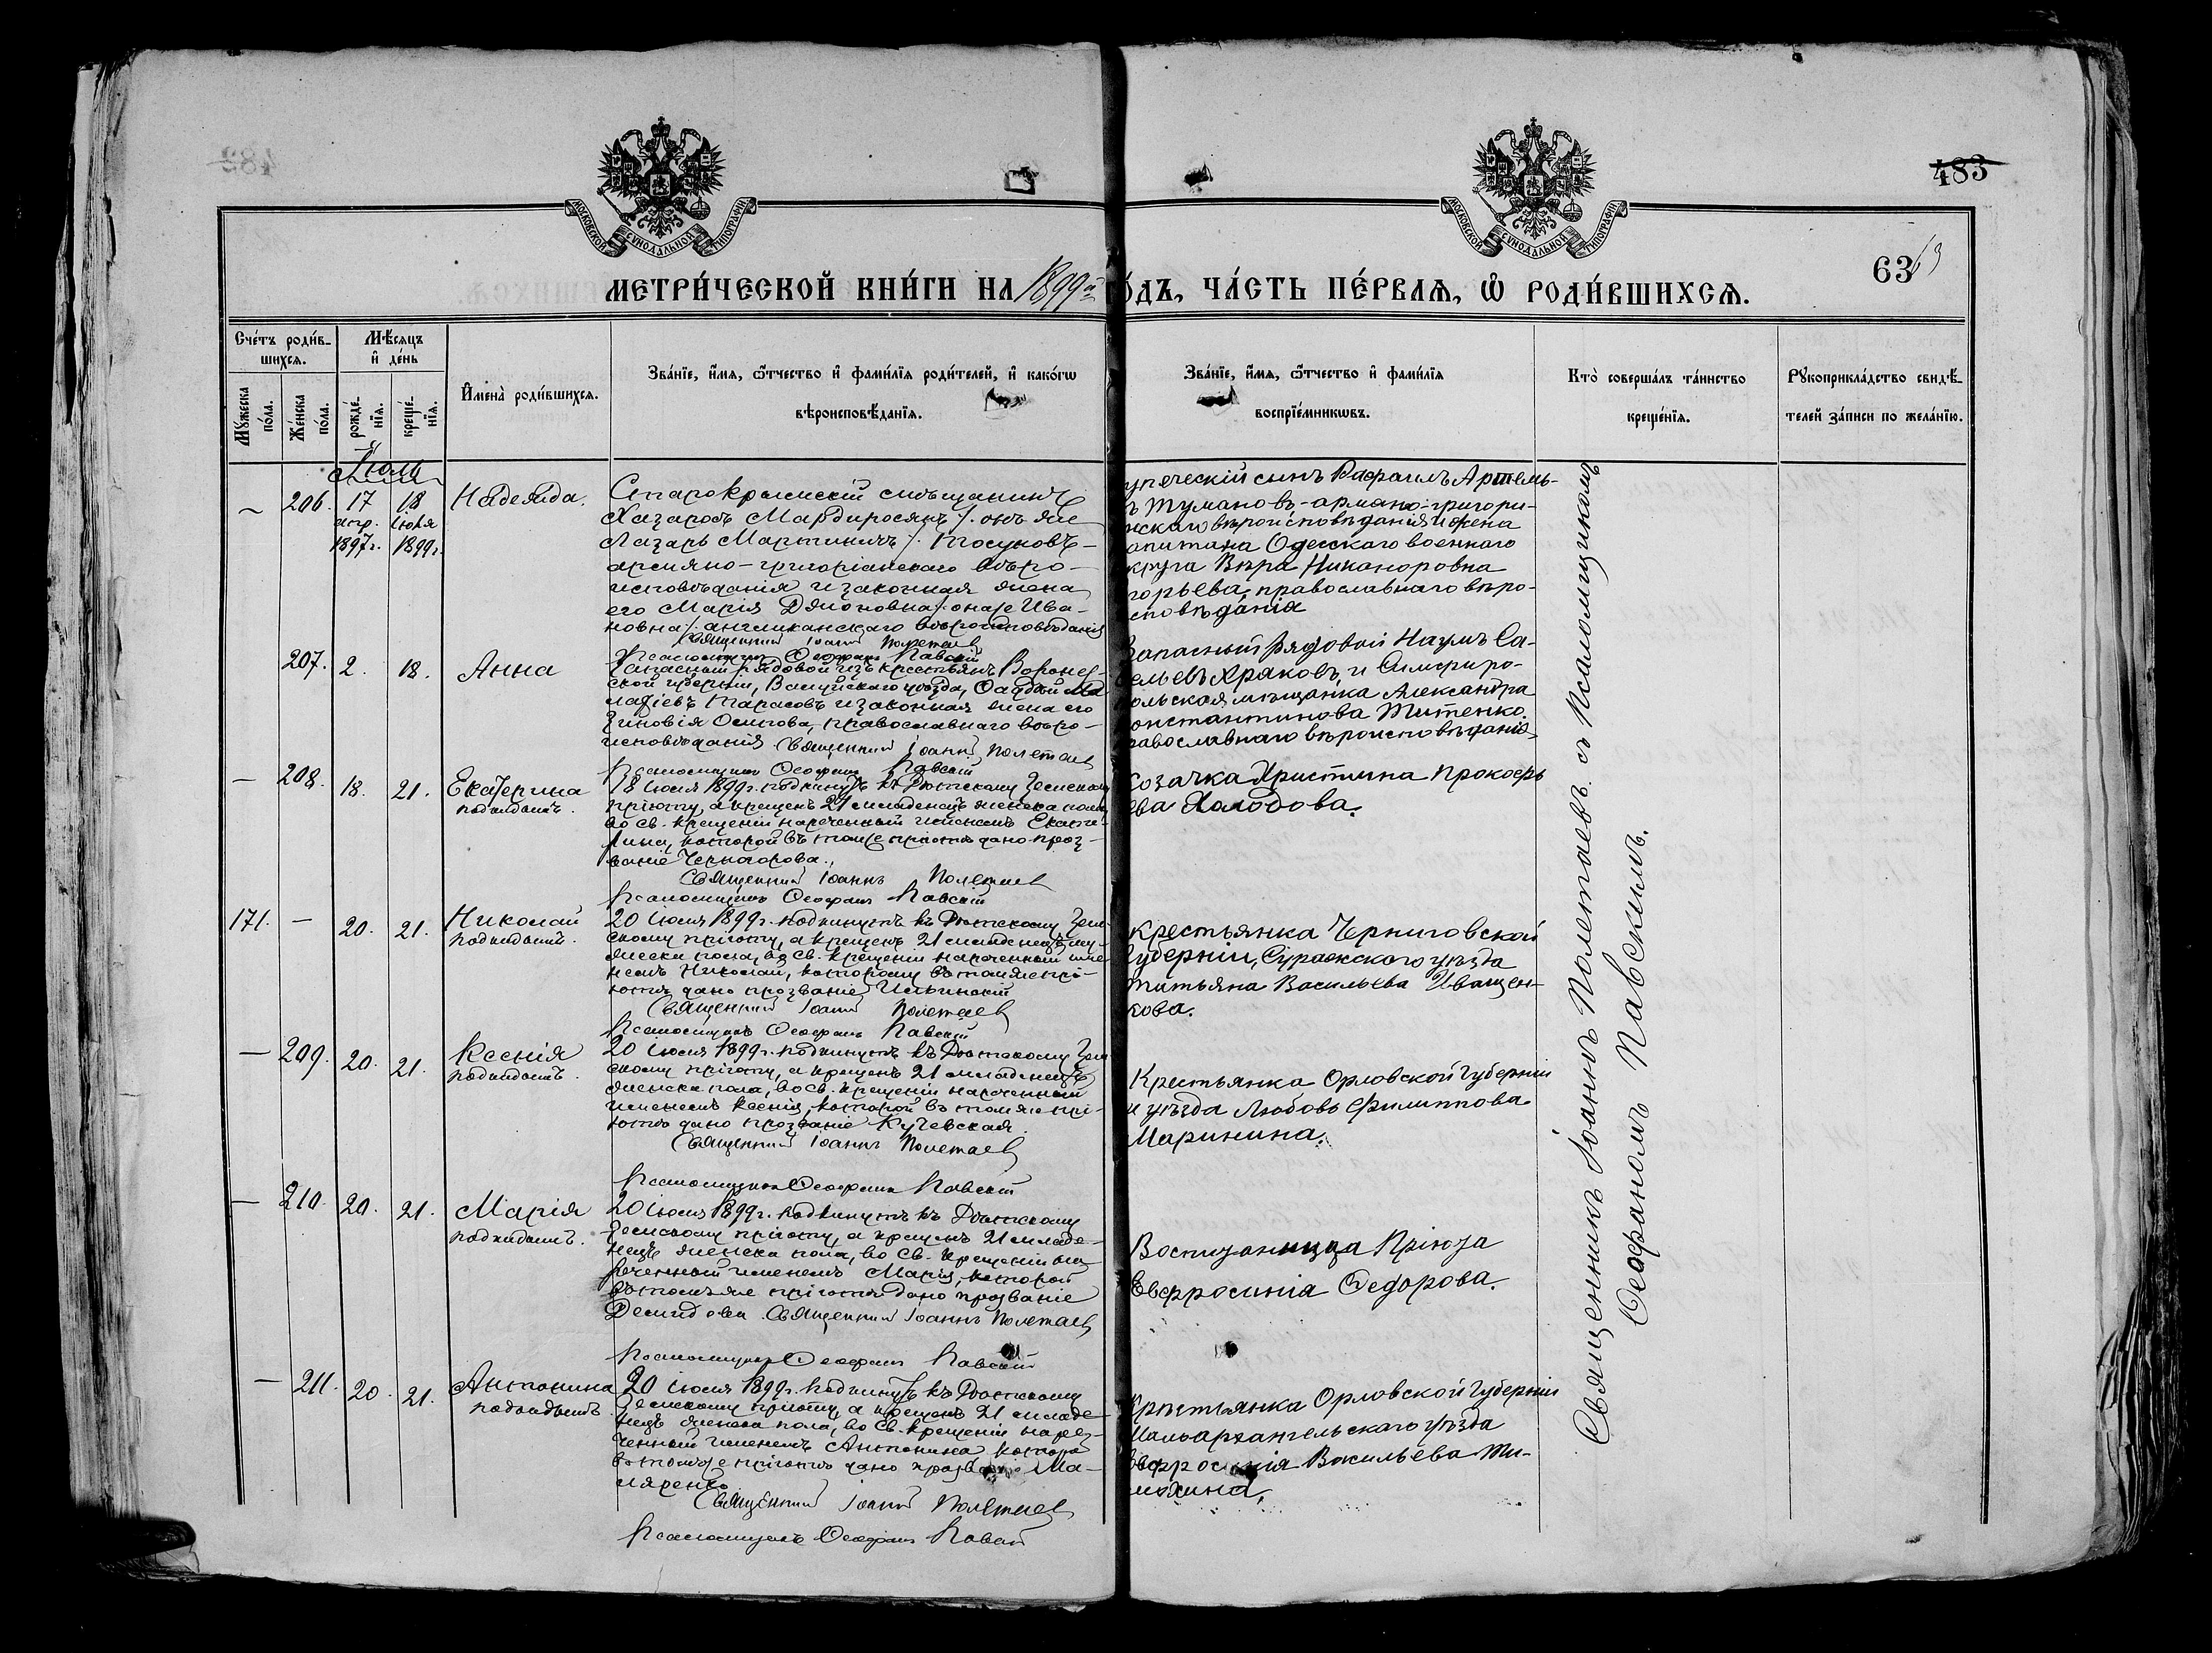 483
МОСКОВСКОЙ СУНОДАЛЬНОЙ ТИПОГРАФІИ
МОСКОВСКОЙ СУНОДАЛЬНОЙ ТИПОГРАФІИ
63
МЕТРИ́ЧЕСКОЙ КНИ́ГИ НА 1899й ГО́ДЪ, ЧА́СТЬ ПЕ́РВАѦ, Ѡ҆ РОДИ́ВШИХСѦ.
Сче́тъ роди́в-
шихсѧ.
Мꙋжеска по́ла.
Же́нска по́ла.
Мѣ́сѧцъ
и҆ де́нь
рожде́-
нїѧ.
креще́-
нїѧ.
И҆мена̀ роди́вшихсѧ.
Зва́нїе, и҆́мѧ, ѻ҆́тчество и҆ фами́лїѧ роди́телей, и҆ како́гѡ
вѣроисповѣ́данїѧ.
Зва́нїе, и҆́мѧ, ѻ҆́тчество и҆ фами́лїѧ
воспрїе́мникѡвъ.
Кто̀ соверша́лъ та́инство
креще́нїѧ.
Рꙋкоприкла́дство свидѣ́-
телей за́писи по жела́нїю.
Іюль
206. 17 апр. 1897г. 18 іюля 1899г.
Надежда.
Старокрымскій мѣщанинъ
Хазаросъ Мардиросянъ /. онъ же
Лазарь Мартиновъ /. Тосуновъ
армяно-григоріанскаго вѣро-
исповѣданія и законная жена
его Марія Джоновна /. она же Ива-
новна /. англиканскаго вѣроисповѣданія
Священникъ Іоаннъ Полетаевъ
Псаломщикъ Ѳеофанъ Павскій
упеческій сынъ Рафаилъ Артемь-
ъ Тумановъ-армяно-григорі-
нскаго вѣроисповѣданія и жена
апитана Одесскаго военнаго
круга Вѣра Никаноровна
горьева, православнаго вѣро-
сповѣданія
207. 2. 18.
Анна
Запасный рядовой изъ крестьянъ Воронеж-
ской губерніи, Валуйскаго уѣзда,
Тарасовъ и законная жена его
Зиновія Осипова, православнаго вѣро-
исповѣданія. Священникъ Іоаннъ Полетаевъ
Псаломщикъ Ѳеофанъ Павскій
Запасный рядовой Наумъ Са-
ельевъ Хряковъ, и Симферо-
ольская мѣщанка Александра
онстантинова Титенко.
равославнаго вѣроисповѣданія.
— 208. 18. 21.
Екатерина
подкидышъ.
18 іюля 1899г. подкинутъ къ Дѣтскому Земскому
пріюту, а крещенъ 21 младенецъ женска пола,
во св. крещеніи нареченный именемъ Екате-
рина, которой въ томъ же пріютѣ дано проз-
ваніе Черногорова.
Священникъ Іоаннъ Полетаевъ
Псаломщикъ Ѳеофанъ Павскій
Козачка Христина Прокофь
ева Холодова.
171. — 20. 21.
Николай
подкидышъ.
20 іюля 1899г. подкинутъ къ Дѣтскому Зем-
скому пріюту, а крещенъ 21 младенецъ му-
жеска пола, во св. крещеніи нареченный име-
немъ Николай, которому въ томъ же прі-
ютѣ дано прозваніе Ильинскій
Священникъ Іоаннъ Полетаевъ
Псаломщикъ Ѳеофанъ Павскій
Крестьянка Черниговской
Губерніи, Суражскаго уѣзда
Татьяна Васильева Иващен-
кова.
— 209. 20. 21.
Ксенія
подкидышъ.
20 іюля 1899г. подкинутъ къ Дѣтскому Зем
скому пріюту, а крещенъ 21 младенецъ
женска пола, во св. крещеніи нареченный
именемъ Ксенія, которой въ томъ же прі-
ютѣ дано прозваніе Кучевская.
Священникъ Іоаннъ Полетаевъ
Псаломщикъ Ѳеофанъ Павскій
Крестьянка Орловской Губерніи
и уѣзда Любовь Филиппова
Маринина.
— 210. 20. 21.
Марія
подкидышъ.
20 іюля 1899г. подкинутъ къ Дѣтскому
Земскому пріюту, а крещенъ 21 младе-
нецъ женска пола, во св. крещеніи на
реченный именемъ Марія, которой
въ томъ же пріютѣ дано прозваніе
Демидова. Священникъ Іоаннъ Полетаевъ
Псаломщикъ Ѳеофанъ Павскій
Воспитанница Пріюта
Евфросинія Ѳедорова.
— 211. 20. 21.
Антонина
подкидышъ.
20 іюля 1899г. подкинутъ къ Дѣтскому
Земскому пріюту, а крещенъ 21 младе-
нецъ женска пола, во св. крещеніи наре-
ченный именемъ Антонина которой
въ томъ же пріютѣ дано прозваніе Ма-
ляренко
Священникъ Іоаннъ Полетаевъ
Псаломщикъ Ѳеофанъ Павскій
Крестьянка Орловской Губерніи
Малоархангельскаго уѣзда
Евфросинія Васильева Ти-
Священникъ Іоаннъ Полетаевъ съ Псаломщикомъ
Ѳеофаномъ Павскимъ.